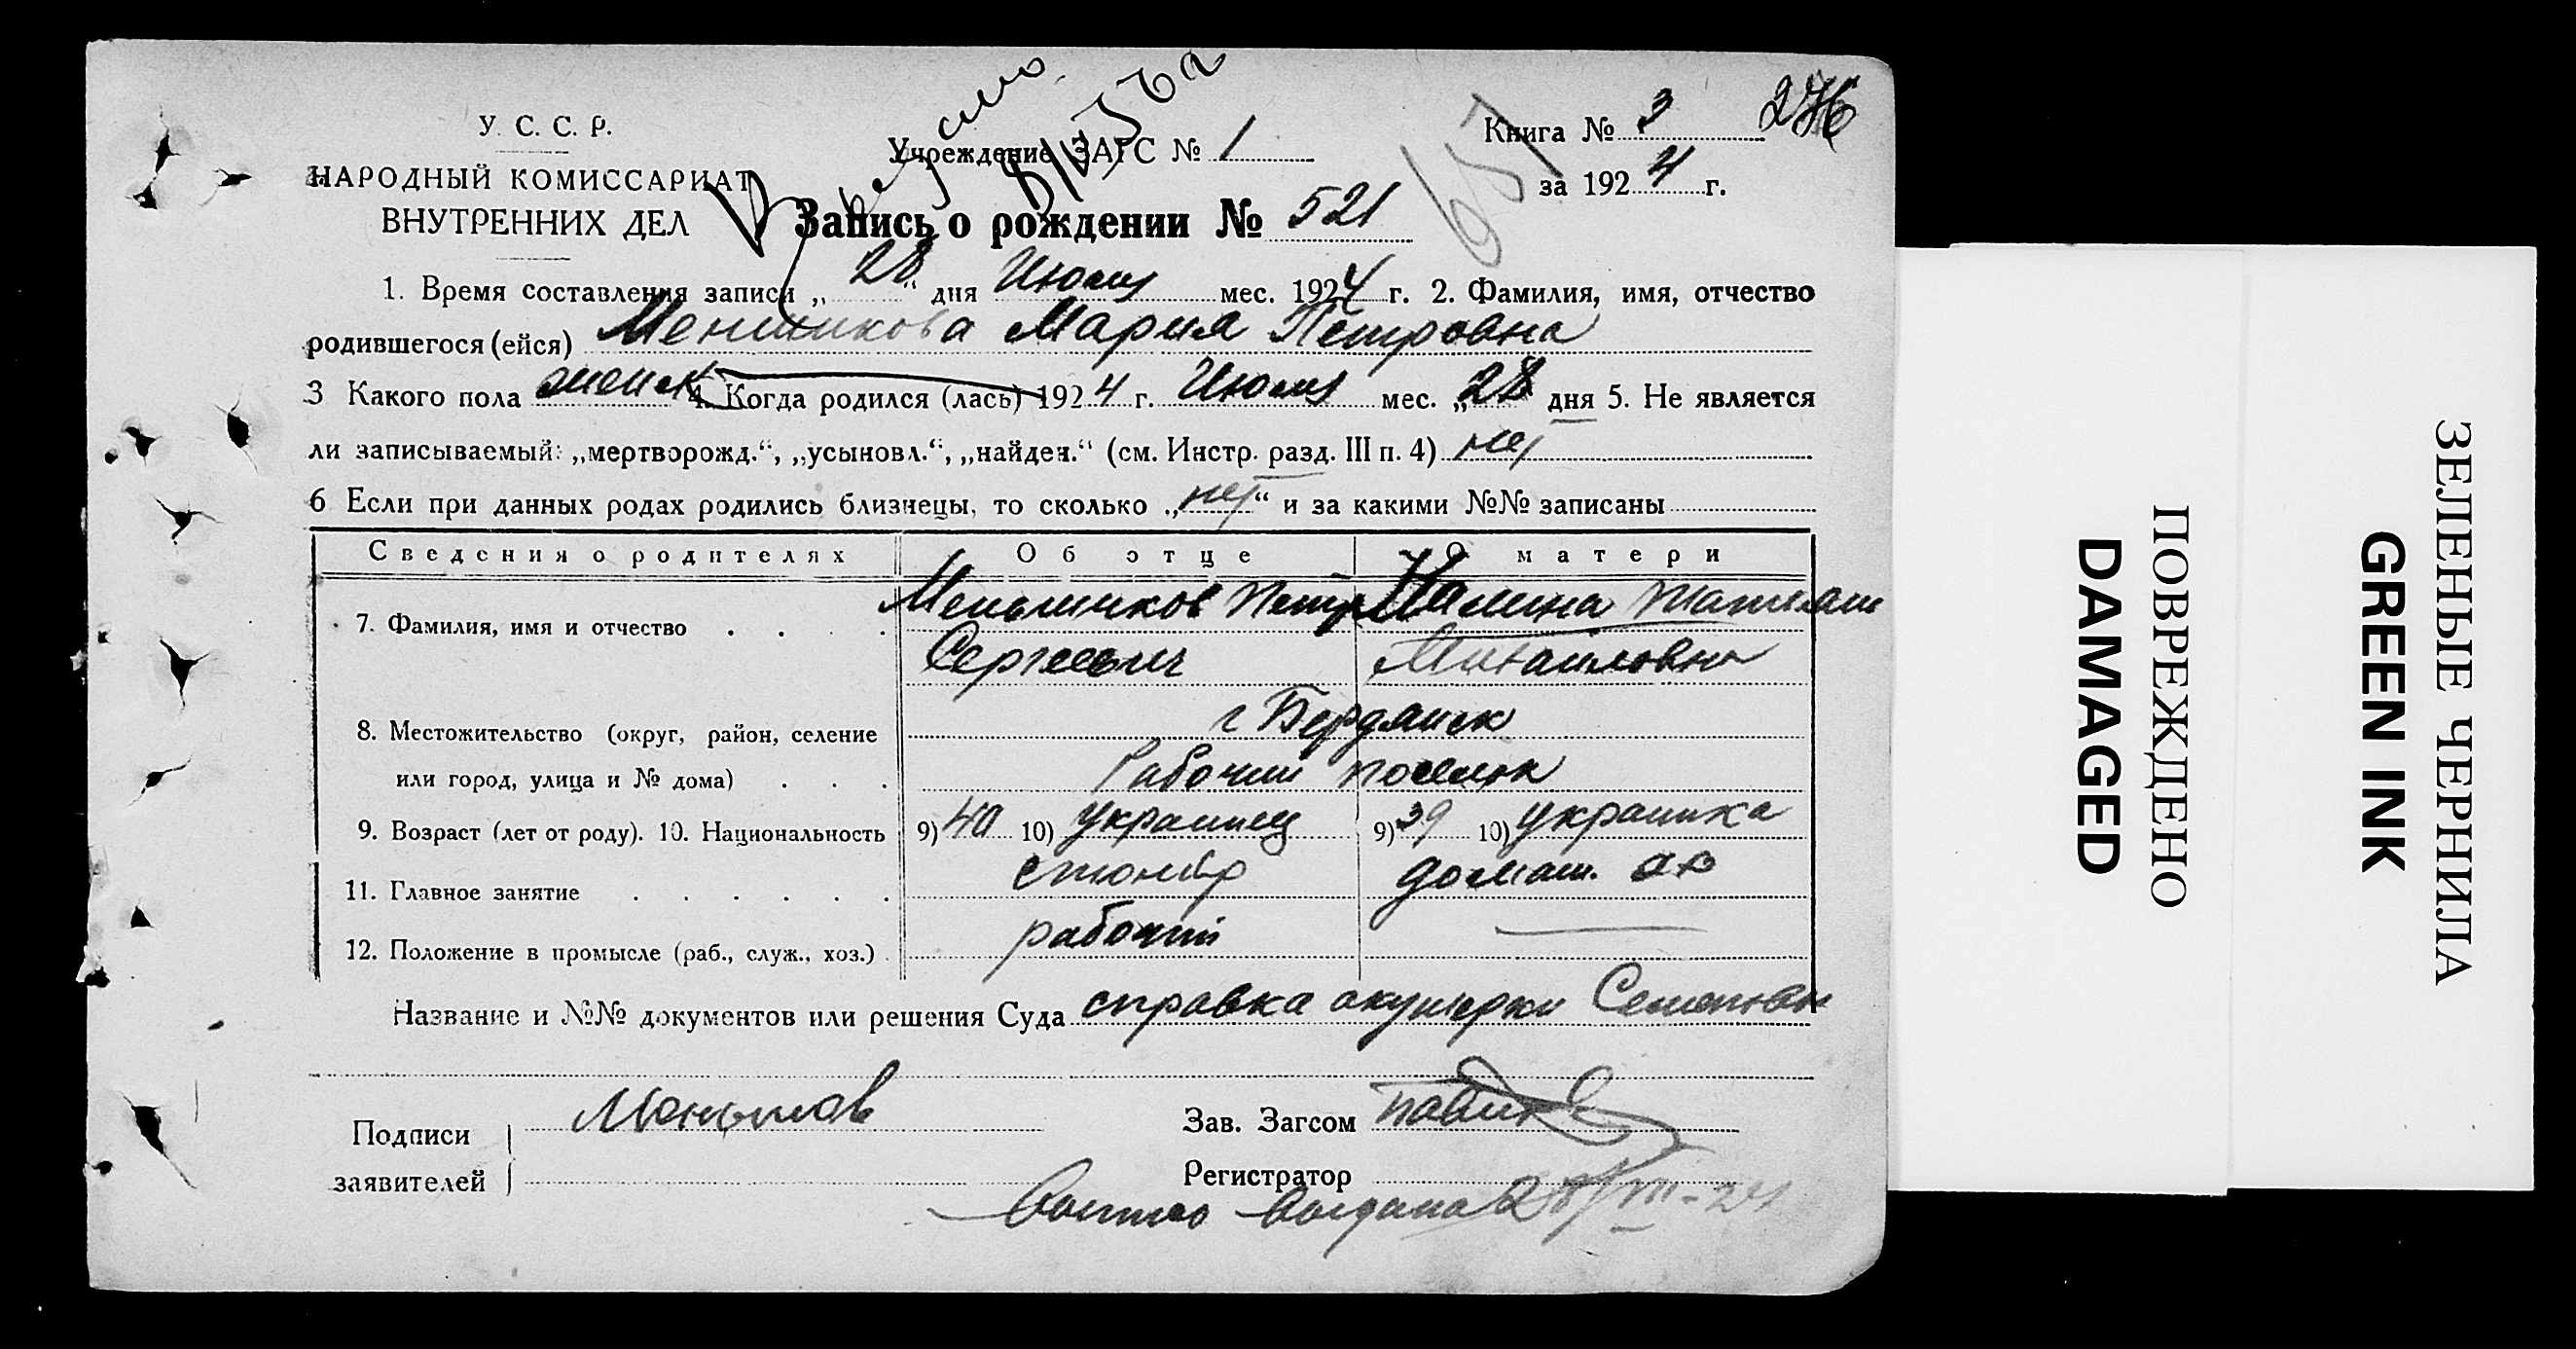 276
Книга № 3
У. С. С. Р.
Учреждение ЗАГС № 1
за 1924 г.
НАРОДНЫЙ КОМИССАРИАТ
ВНУТРЕННИХ ДЕЛ
Запись о рождении № 521
1. Время составления записи „28“ дня Июля мес. 1924 г. 2. Фамилия, имя, отчество
родившегося (ейся) Меншикова Мария Петровна
3 Какого пола женск 4. Когда родился (лась) 1924 г. Июля мес. „28 дня 5. Не является
ли записываемый: „мертворожд.“, „усыновл.“, „найден.“ (см. Инстр. разд. III п. 4) нет
6 Если при данных родах родились близнецы, то сколько „нет“ и за какими №№ записаны
Сведения о родителях Об отце О матери
7. Фамилия, имя и отчество Меньшиков Петр
Сергеевич Михайловна
8. Местожительство (округ, район, селение г Бердянск
или город, улица и № дома) Рабочий поселок
9. Возраст (лет от роду). 10. Национальность 9) 40 10) Украинец 9) 39 10) Украинка
11. Главное занятие домаш.
12. Положение в промысле (раб., служ., хоз.) рабочий
Название и №№ документов или решения Суда справка акушерки
Подписи
заявителей
Зав. Загсом
Регистратор
28/VII-24
ПОВРЕЖДЕНО
DAMAGED
ЗЕЛЕНЫЕ ЧЕРНИЛА
GREEN INK